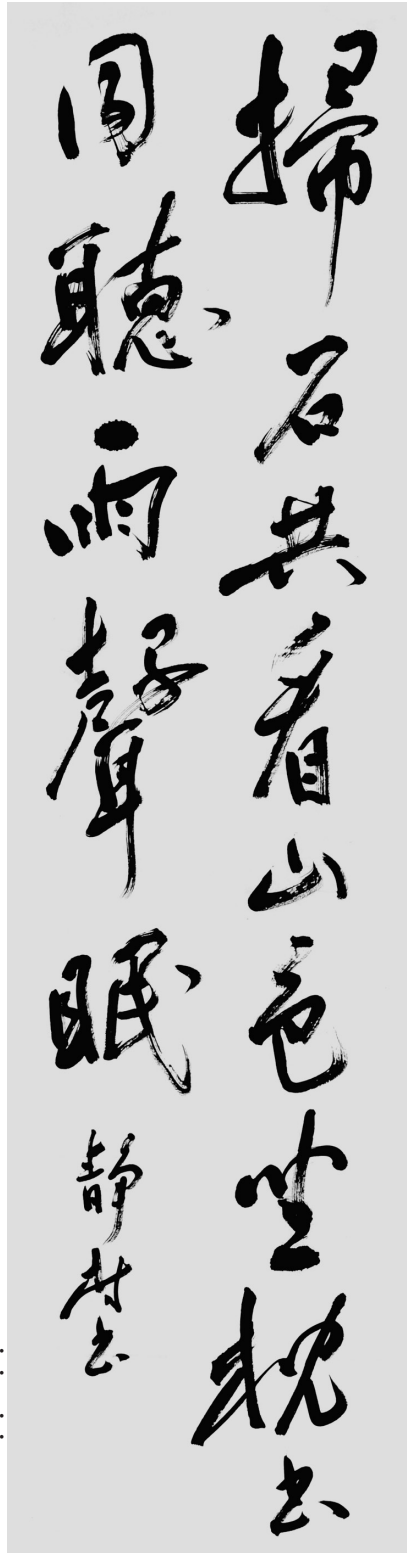 掃石共看山色坐枕書
同聽雨聲眠 靜村書